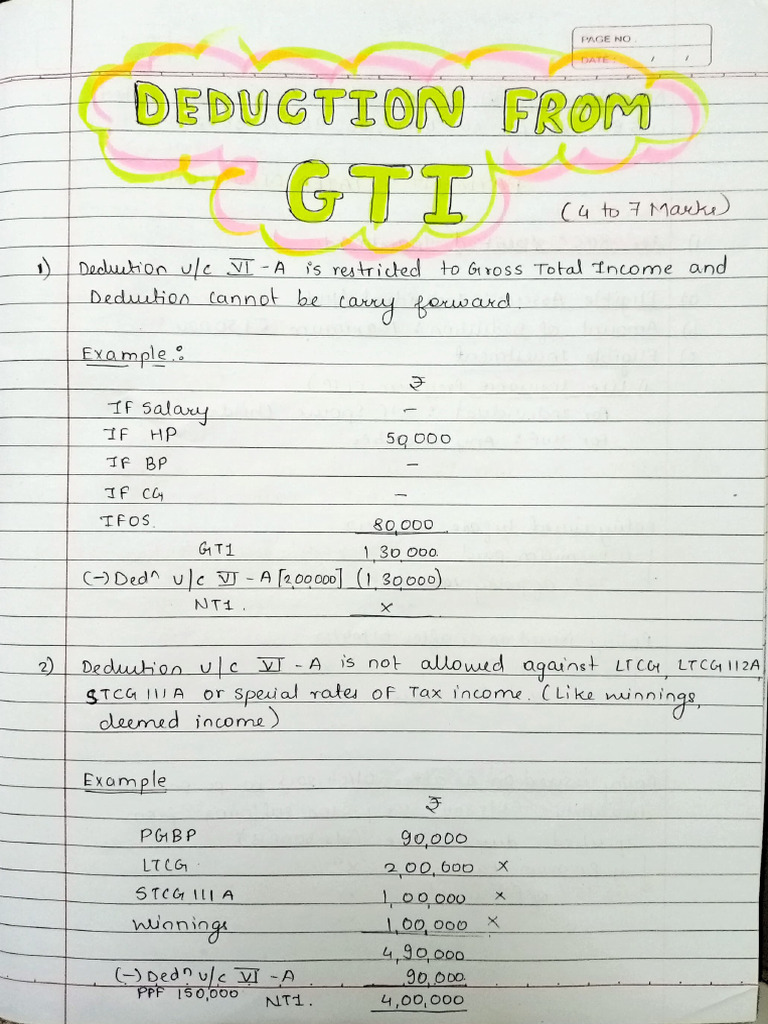 PAGE NO.
DATE: / /
DEDUCTION FROM
GTI
(4 to 7 Marks)
1) Deduction u/c VI-A is restricted to Gross Total Income and
Deduction cannot be carry forward.
Example:
₹
IF Salary –
IF HP 50,000
IF BP –
IF CG –
IFOS. 80,000
GTI 1,30,000.
(-) Dedn u/c VI-A [2,00,000] (1,30,000)
NTI. ×
2) Deduction u/c VI-A is not allowed against LTCG, LTCG 112A,
STCG 111A or special rates of Tax income. (Like winnings,
deemed income)
Example
₹
PGBP 90,000
LTCG 2,00,000 ×
STCG 111A 1,00,000 ×
Winnings 1,00,000 ×
4,90,000
(-) Dedn u/c VI-A 90,000.
PPF 150,000 NTI. 4,00,000